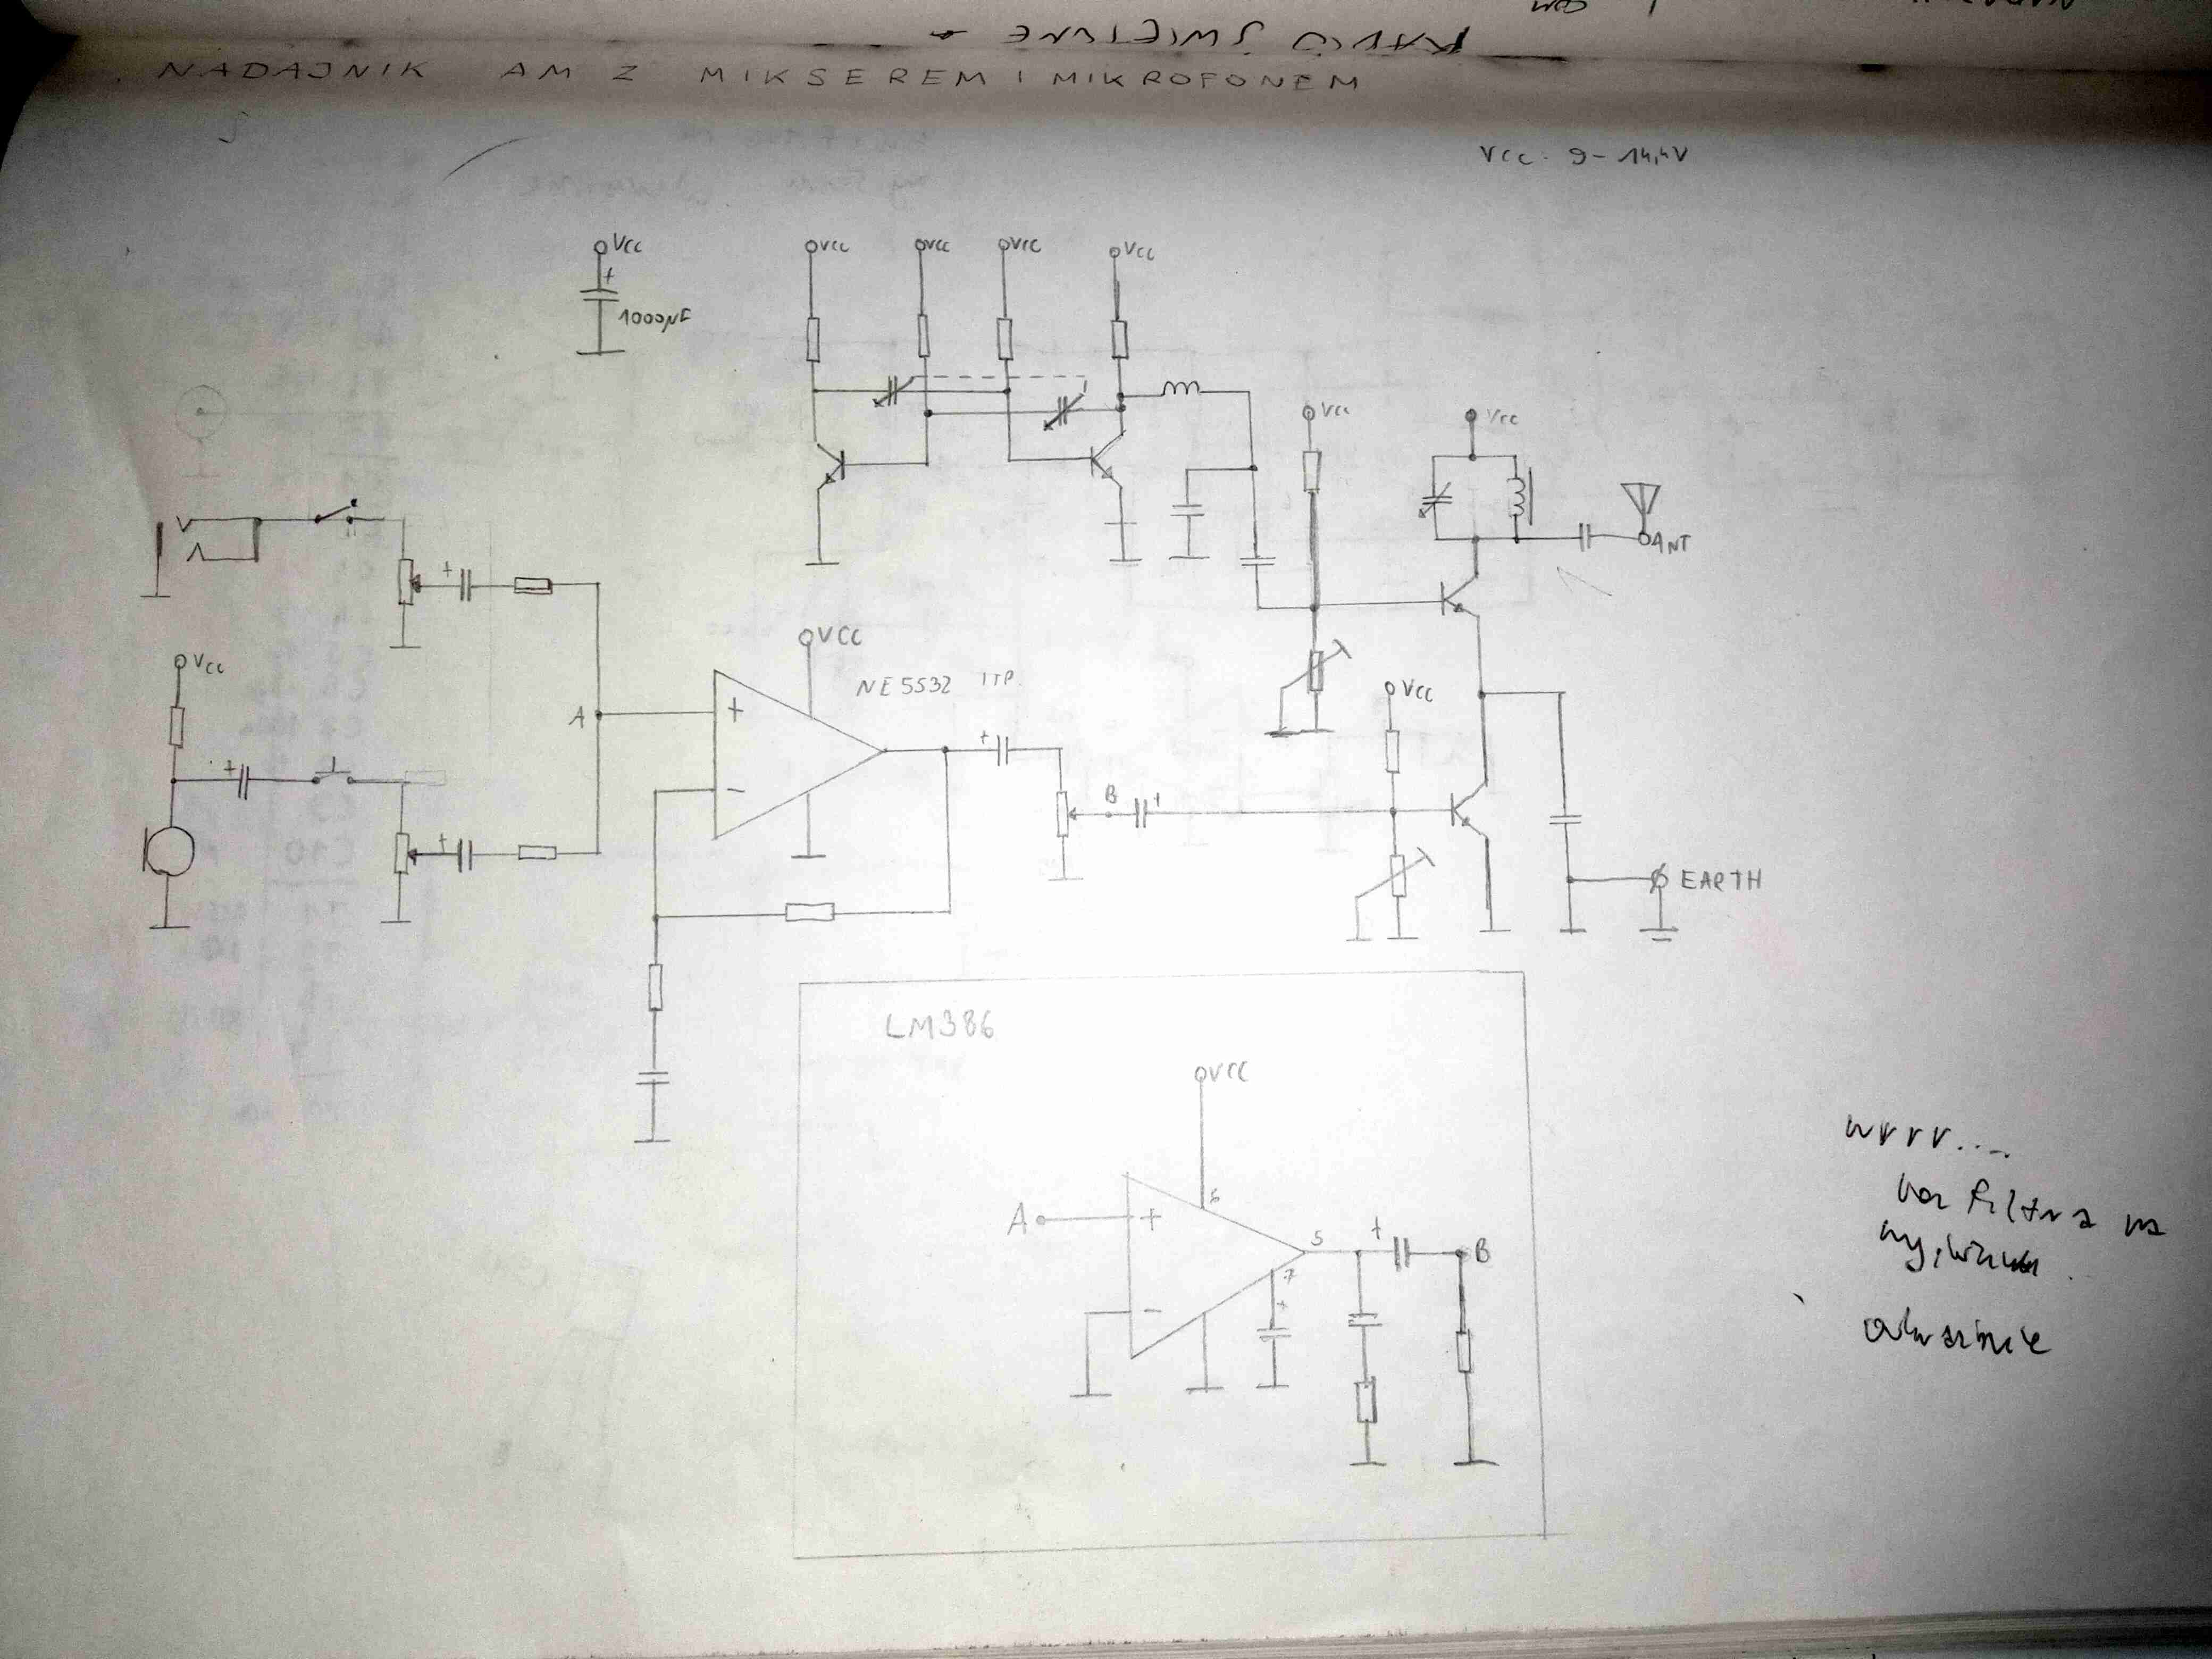 NADAJNIK AM Z MIKSEREM I MIKROFONEM
Vcc - 9 - 14,4V
Vcc
+
1000µF
Vcc
Vcc
Vcc
Vcc
Vcc
Vcc
ANT
+
Vcc
VCC
NE5532 ITP.
A
+
-
+
Vcc
B
+
+
+
EARTH
LM386
VCC
6
A
+
5
+
B
-
7
+
wrrr....
filtra na